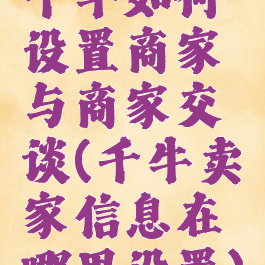 千牛如何
设置商家
与商家交
谈(千牛卖
家信息在
哪里设置)